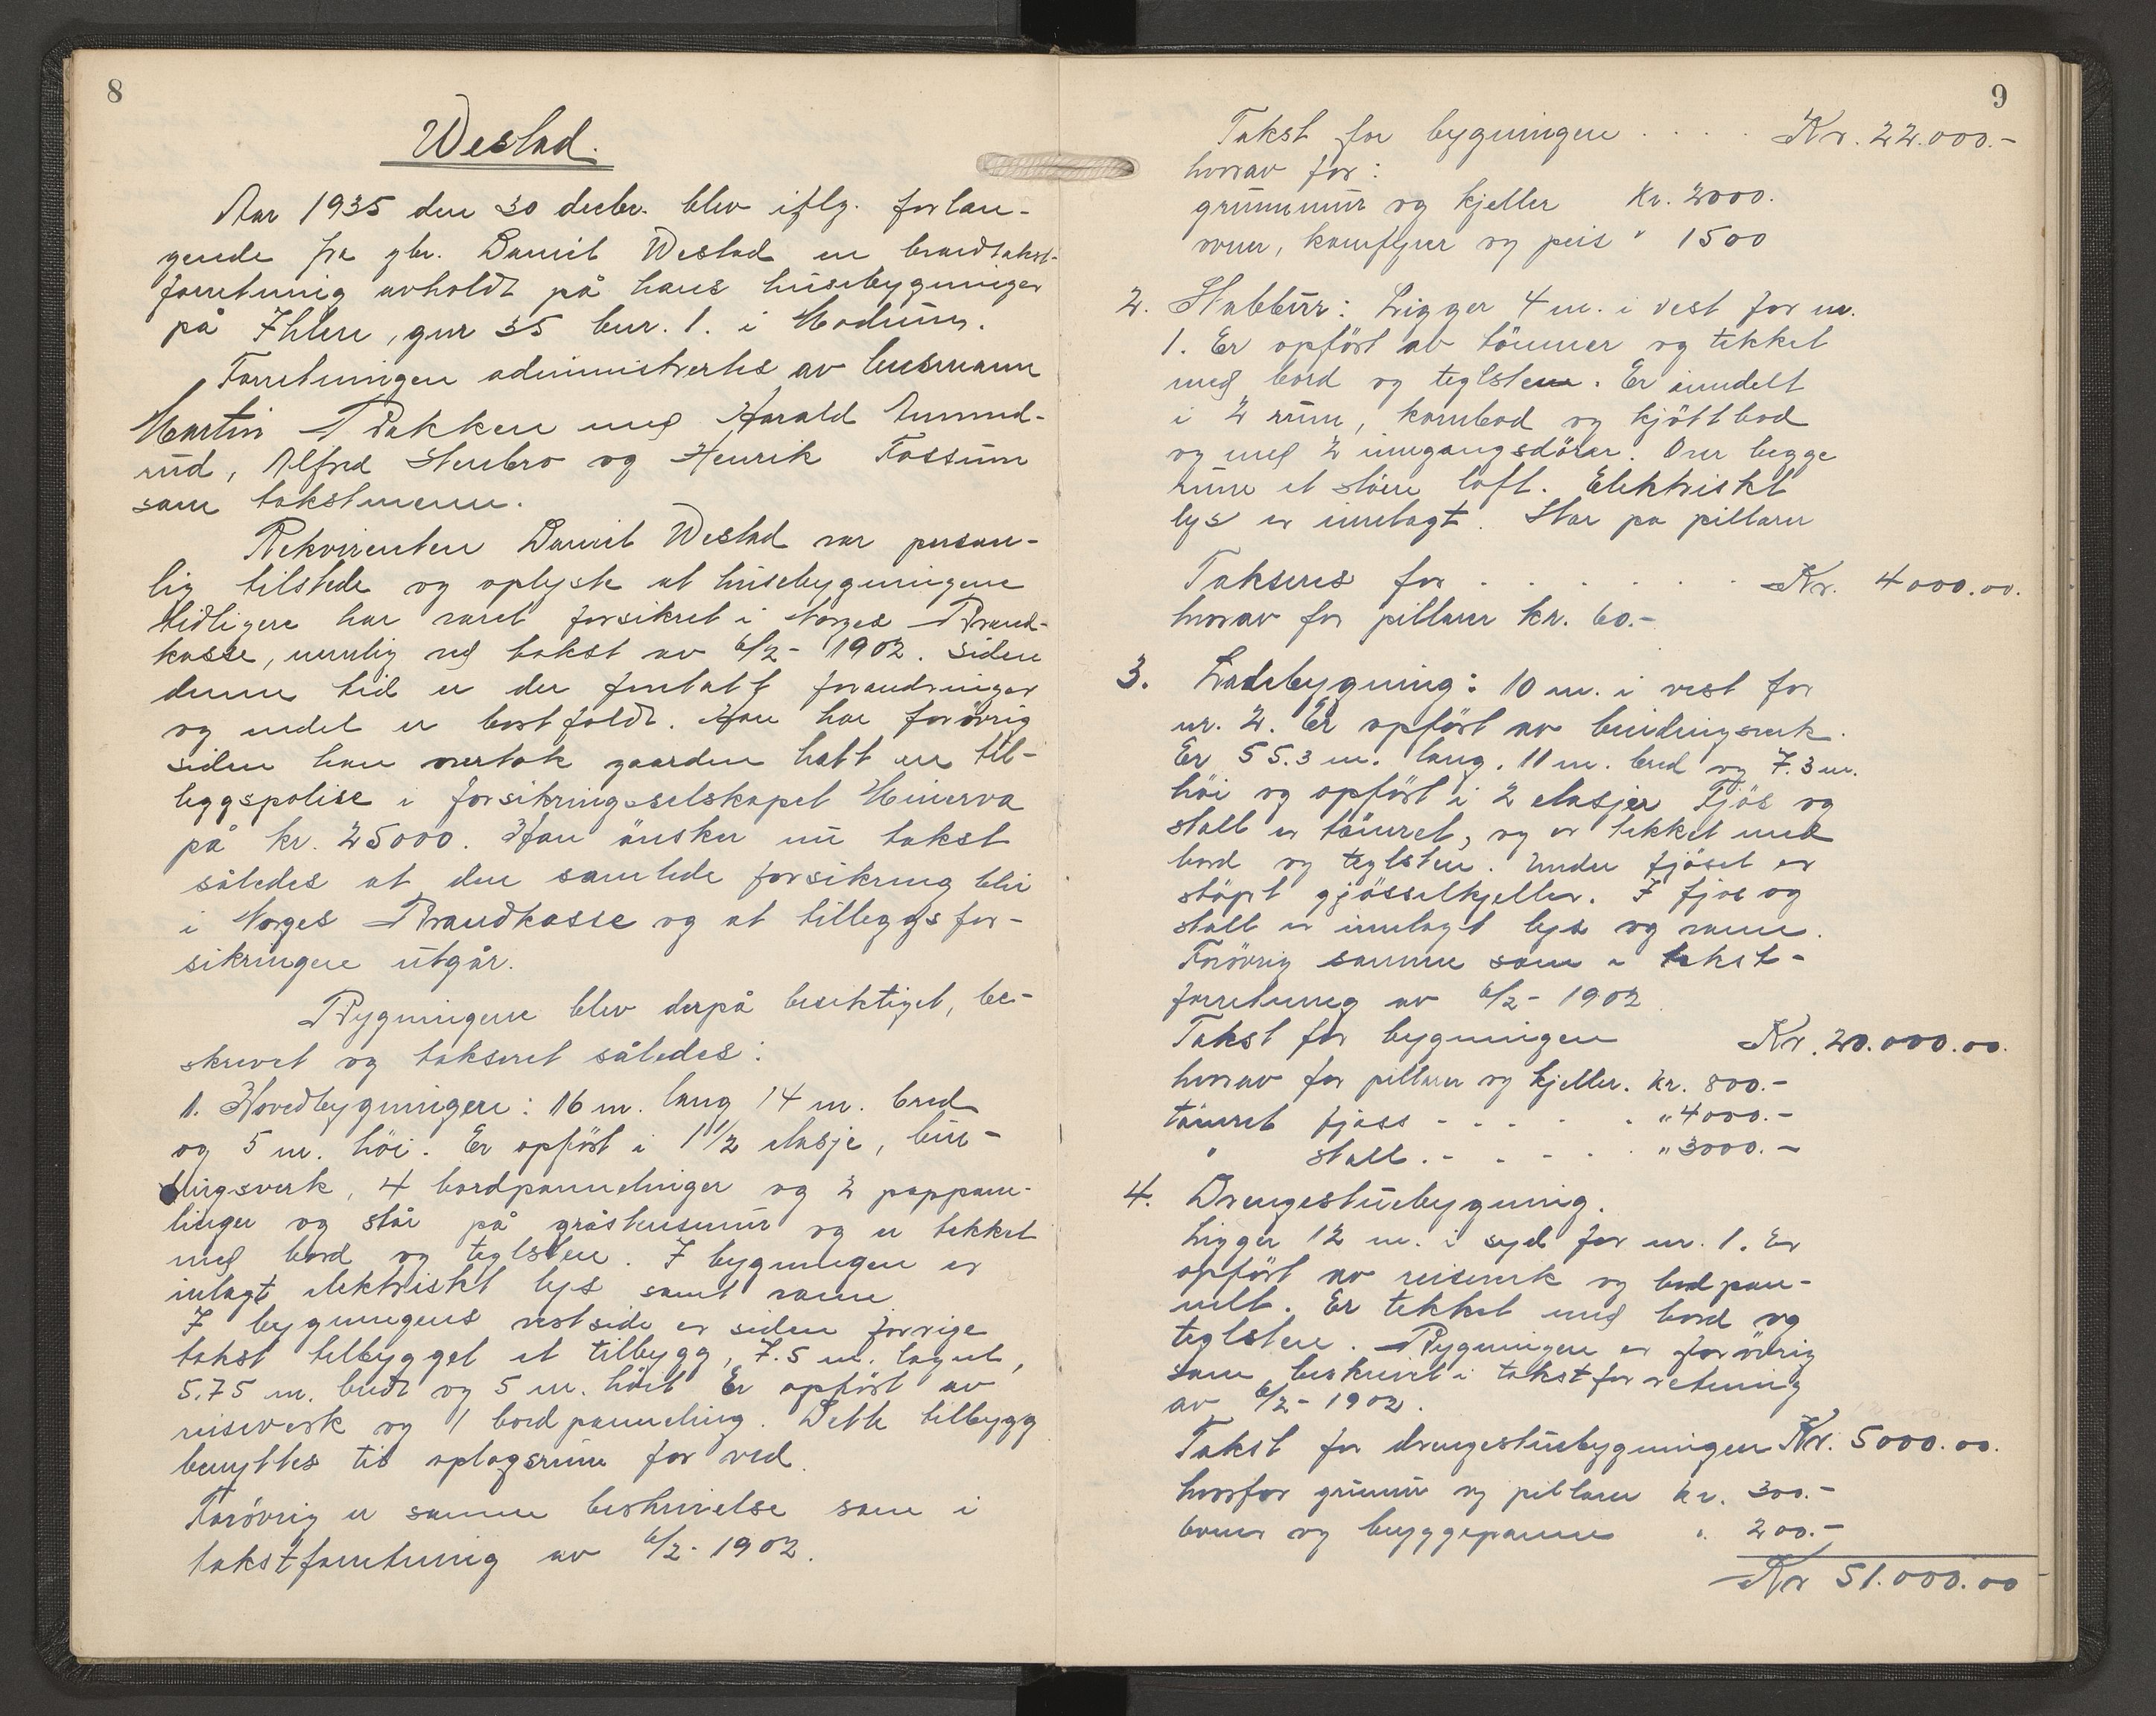 8
Westad.
Aar 1935 den 30 decbr. blev iflg. forlan-
gende fra gbr. Daniel Westad en brandtakst-
forretning avholdt på hans husebygninger
på Ihlen, gnr 35 bnr. 1. i Modum.
Forretningen administrertes av lensmann
Martin Bakken med Harald Amund-
rud, Alfred Stenbro og Henrik Fossum
som takstmenn.
Rekvirenten Daniel Westad var person-
lig tilstede og oplyste at husebygningene
tidligere har været forsikret i Norges Brand-
kasse, nemlig ved takst av 6/2 - 1902. Siden
denne tid er der foretatt forandringer
og endel er bortfaldt. Han har forövrig
siden han overtok gaarden hatt en til-
leggspolise i forsikringsselskapet Minerva
på kr. 25000. Han önsker nu takst
således at den samlede forsikring blir
i Norges Brandkasse og at tilleggsfor-
sikringen utgår.
Bygningene blev derpå besiktiget, be-
skrevet og taksert således:
1. Hovedbygningen: 16 m. lang 14 m. bred
og 5 m. höi. Er opfört i 1 1/2 etasje, bin-
dingsverk, 4 bordpannelinger og 2 pappan-
linger og står på gråstensmur og er tekket
med bord og teglsten. I bygningen er
inlagt elektriskt lys samt vann
I bygningens vestside er siden forrige
takst tilbygget et tilbygg, 7.5 m. langt,
5.75 m. bredt og 5 m. höit Er opfört av
reisverk og 1 bordpanneling. Dette tilbygg
benyttes til oplagsrum for ved.
Forövrig er samme beskrivelse som i
takstforretning av 6/2 - 1902.
9
Takst for bygningen . . . . Kr. 22.000.-
hvorav for:
grunnmur og kjeller Kr. 2000.
ovner, komfyrer og peis " 1500
2. Stabbur: Ligger 4 m. i vest for nr.
1. Er opfört av tömmer og tekket
med bord og teglsten. Er inndelt
i 2 rum, kornbod og kjöttbod
og med 2 inngangsdörer. Over begge
rum et större loft. Elektriskt
lys er innlagt. Star pa pillarer
Takseres for . . . . . . Kr. 4000.00.
hvorav for pillarer kr. 60.-
3. Ladebygning: 10 m. i vest for
nr. 2. Er opfört av bindingsverk.
Er 55.3 m. lang. 11 m. bred og 7.3 m.
höi og opfört i 2 etasjer Fjös og
stall er tömret, og er tekket med
bord og teglsten. Under fjöset er
stöpt gjösselkjeller. I fjös og
stall er innlagt lys og vann.
Forövrig samme som i takst-
forretning av 6/2 - 1902
Takst for bygningen Kr. 20.000.00.
hvorav for pillarer og kjeller. kr. 800.-
tömret fjöss - - - - - " 4000.-
" stall. - - - - " 3000.-
4. Drengestuebygning.
Ligger 12 m. i syd for nr. 1. Er
opfört av reisverk og bordpan-
nelt. Er tekket med bord og
teglsten. Bygningen er forövrig
som beskrevet i takstforretning
av 6/2 - 1902.
Takst for drengestuebygningen Kr. 5000.00.
hvorfor grunmur og pillarer kr. 300.-
ovner og bryggepanne " 200.-
Kr 51.000.00